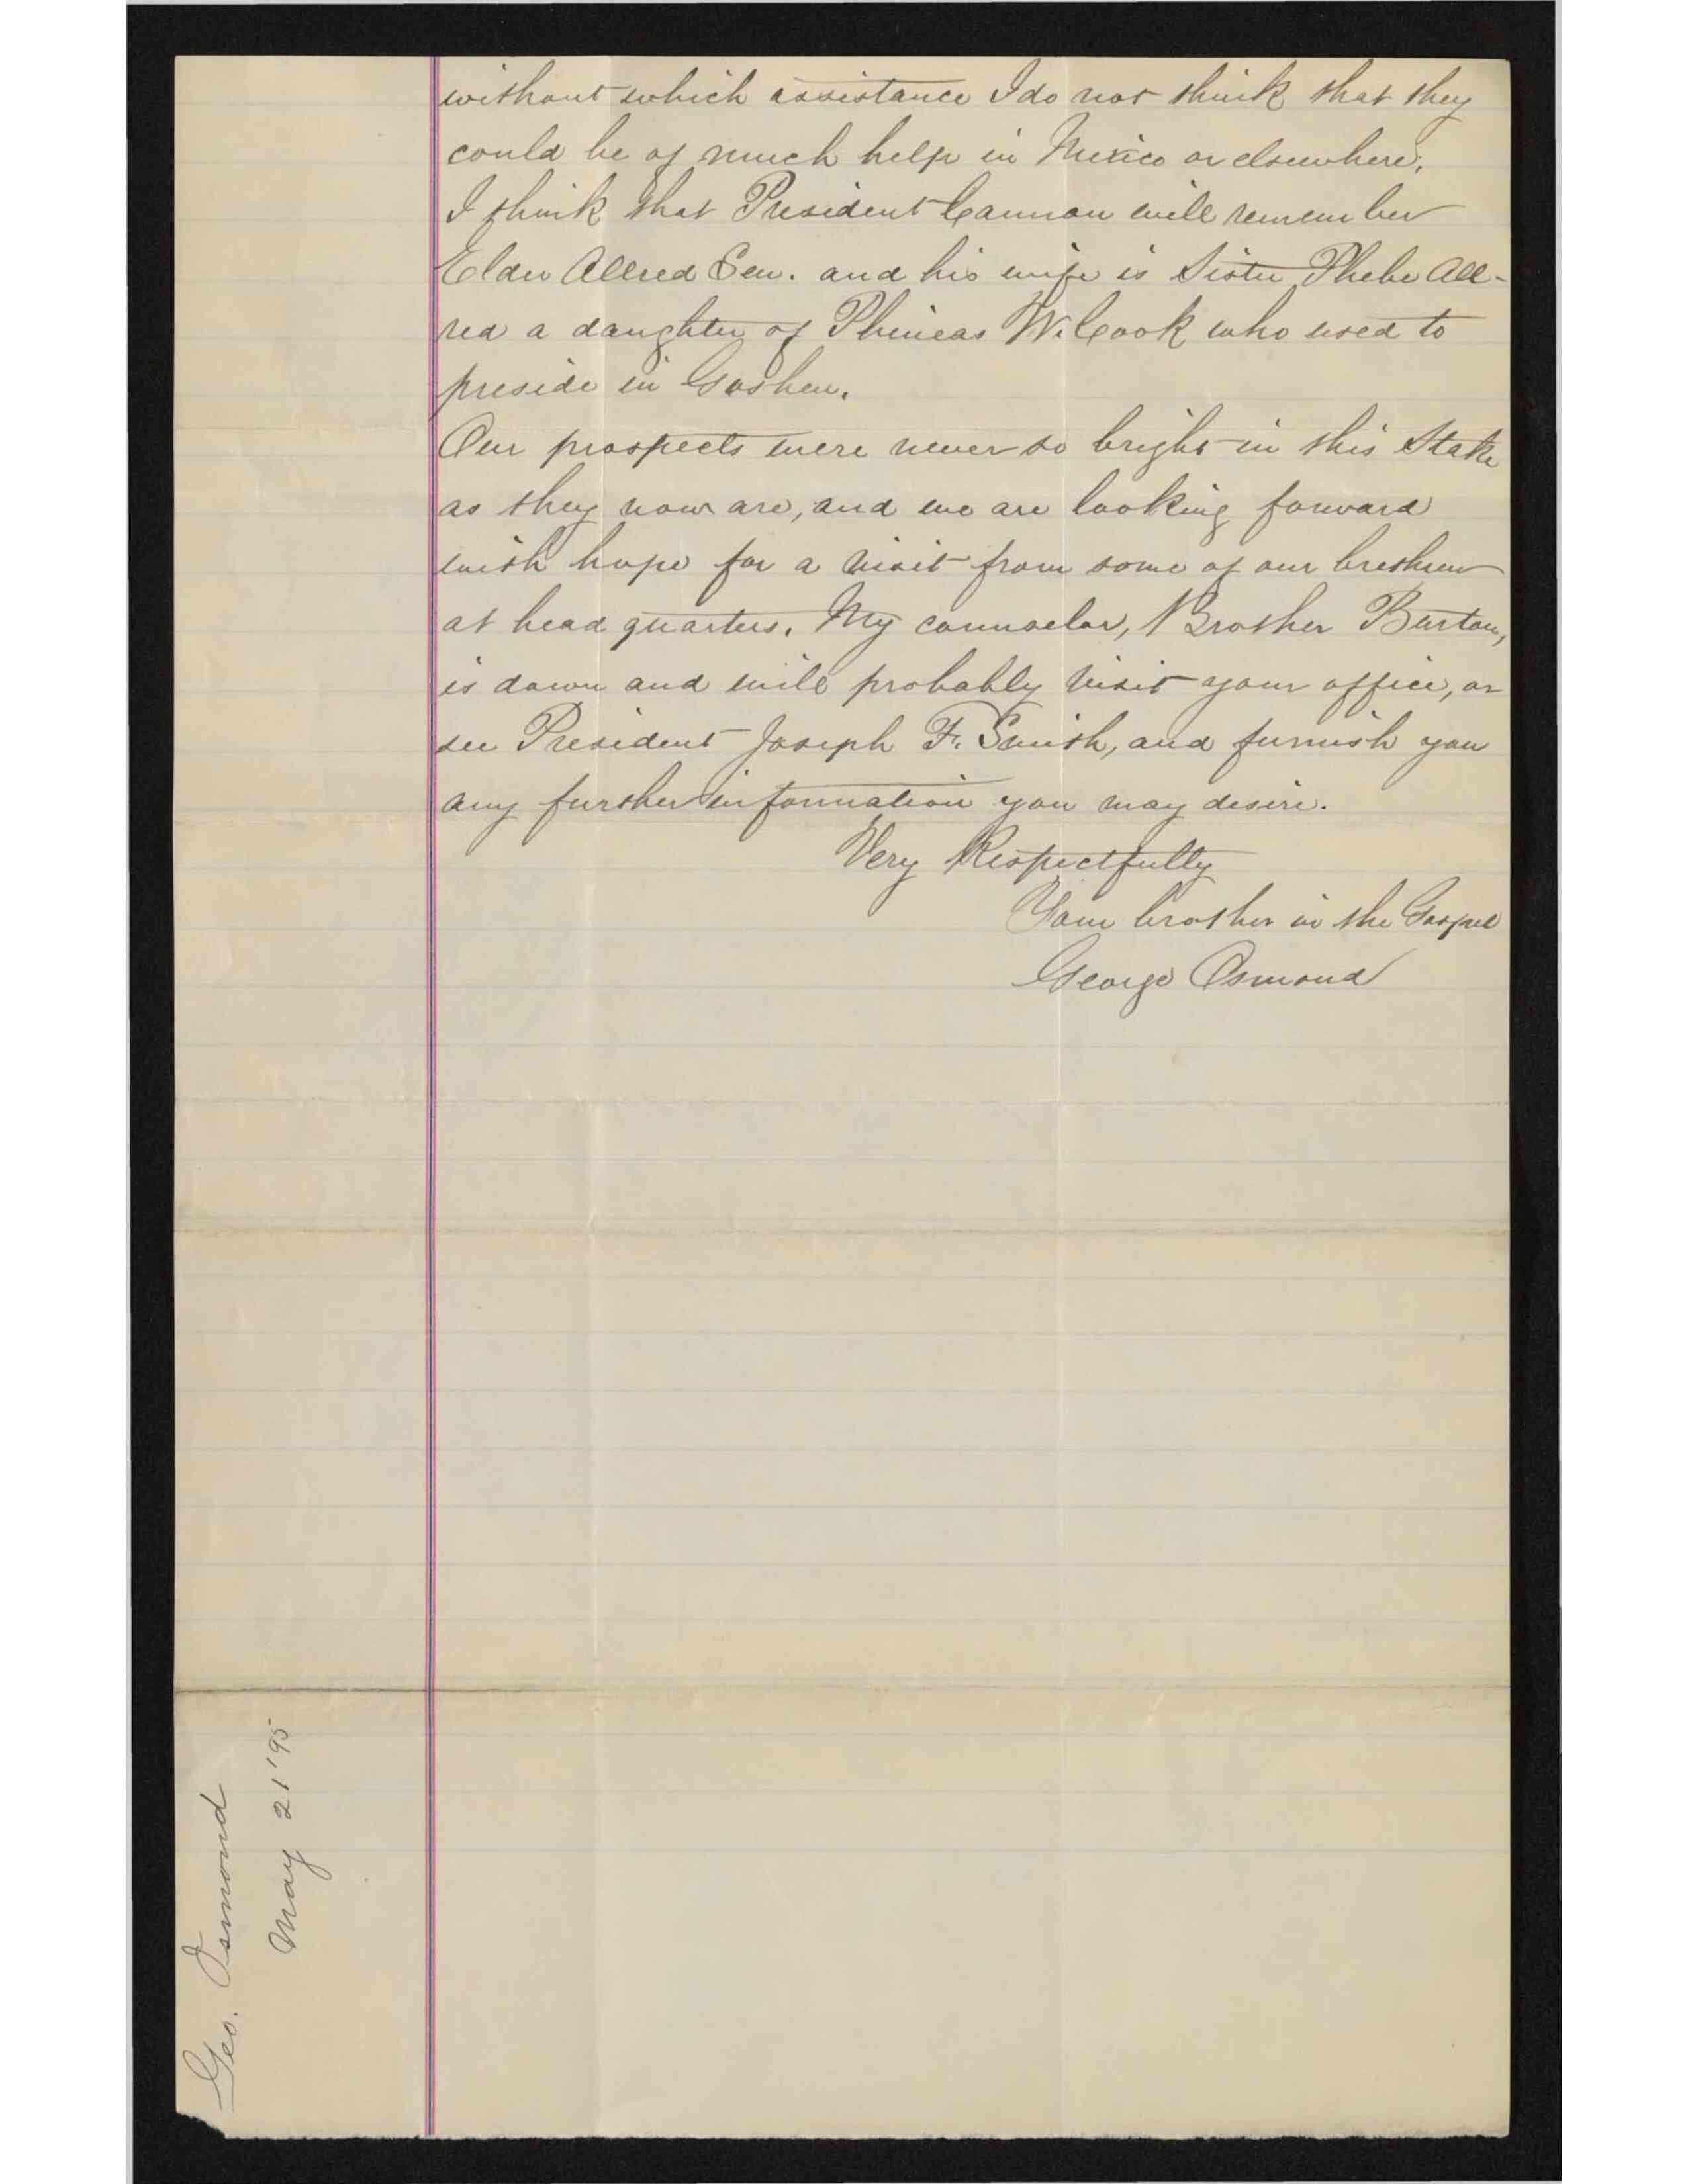 without which assistance I do not think that they
could be of much help in Mexico or elsewhere.
I think that President Cannon will remember
Elder Allred Sen. and his wife is Sister Phebe All-
red a daughter of Phineas W. Cook who used to
preside in Goshen.
Our prospects were never so bright in this Stake
as they now are, and we are looking forward
with hope for a visit from some of our brethren
at head quarters. My counselor, Brother Burton,
is down and will probably visit your office, or
see President Joseph F. Smith, and furnish you
any further information you may desire.
Very Respectfully
Your brother in the Gospel
George Osmond
Geo. Osmond
May 21 '95